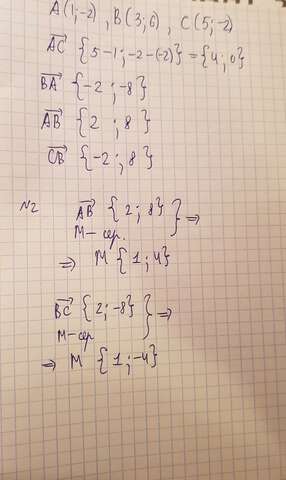 A(1;-2), B(3;6), C(5;-2)
AC {5-1;-2-(-2)} = {4;0}
BA {-2;-8}
AB {2;8}
CB {-2;8}
№2
AB {2;8} } ⇒
M-сер.
⇒ M {1;4}
BC {2;-8} } ⇒
M-сер
⇒ M {1;-4}